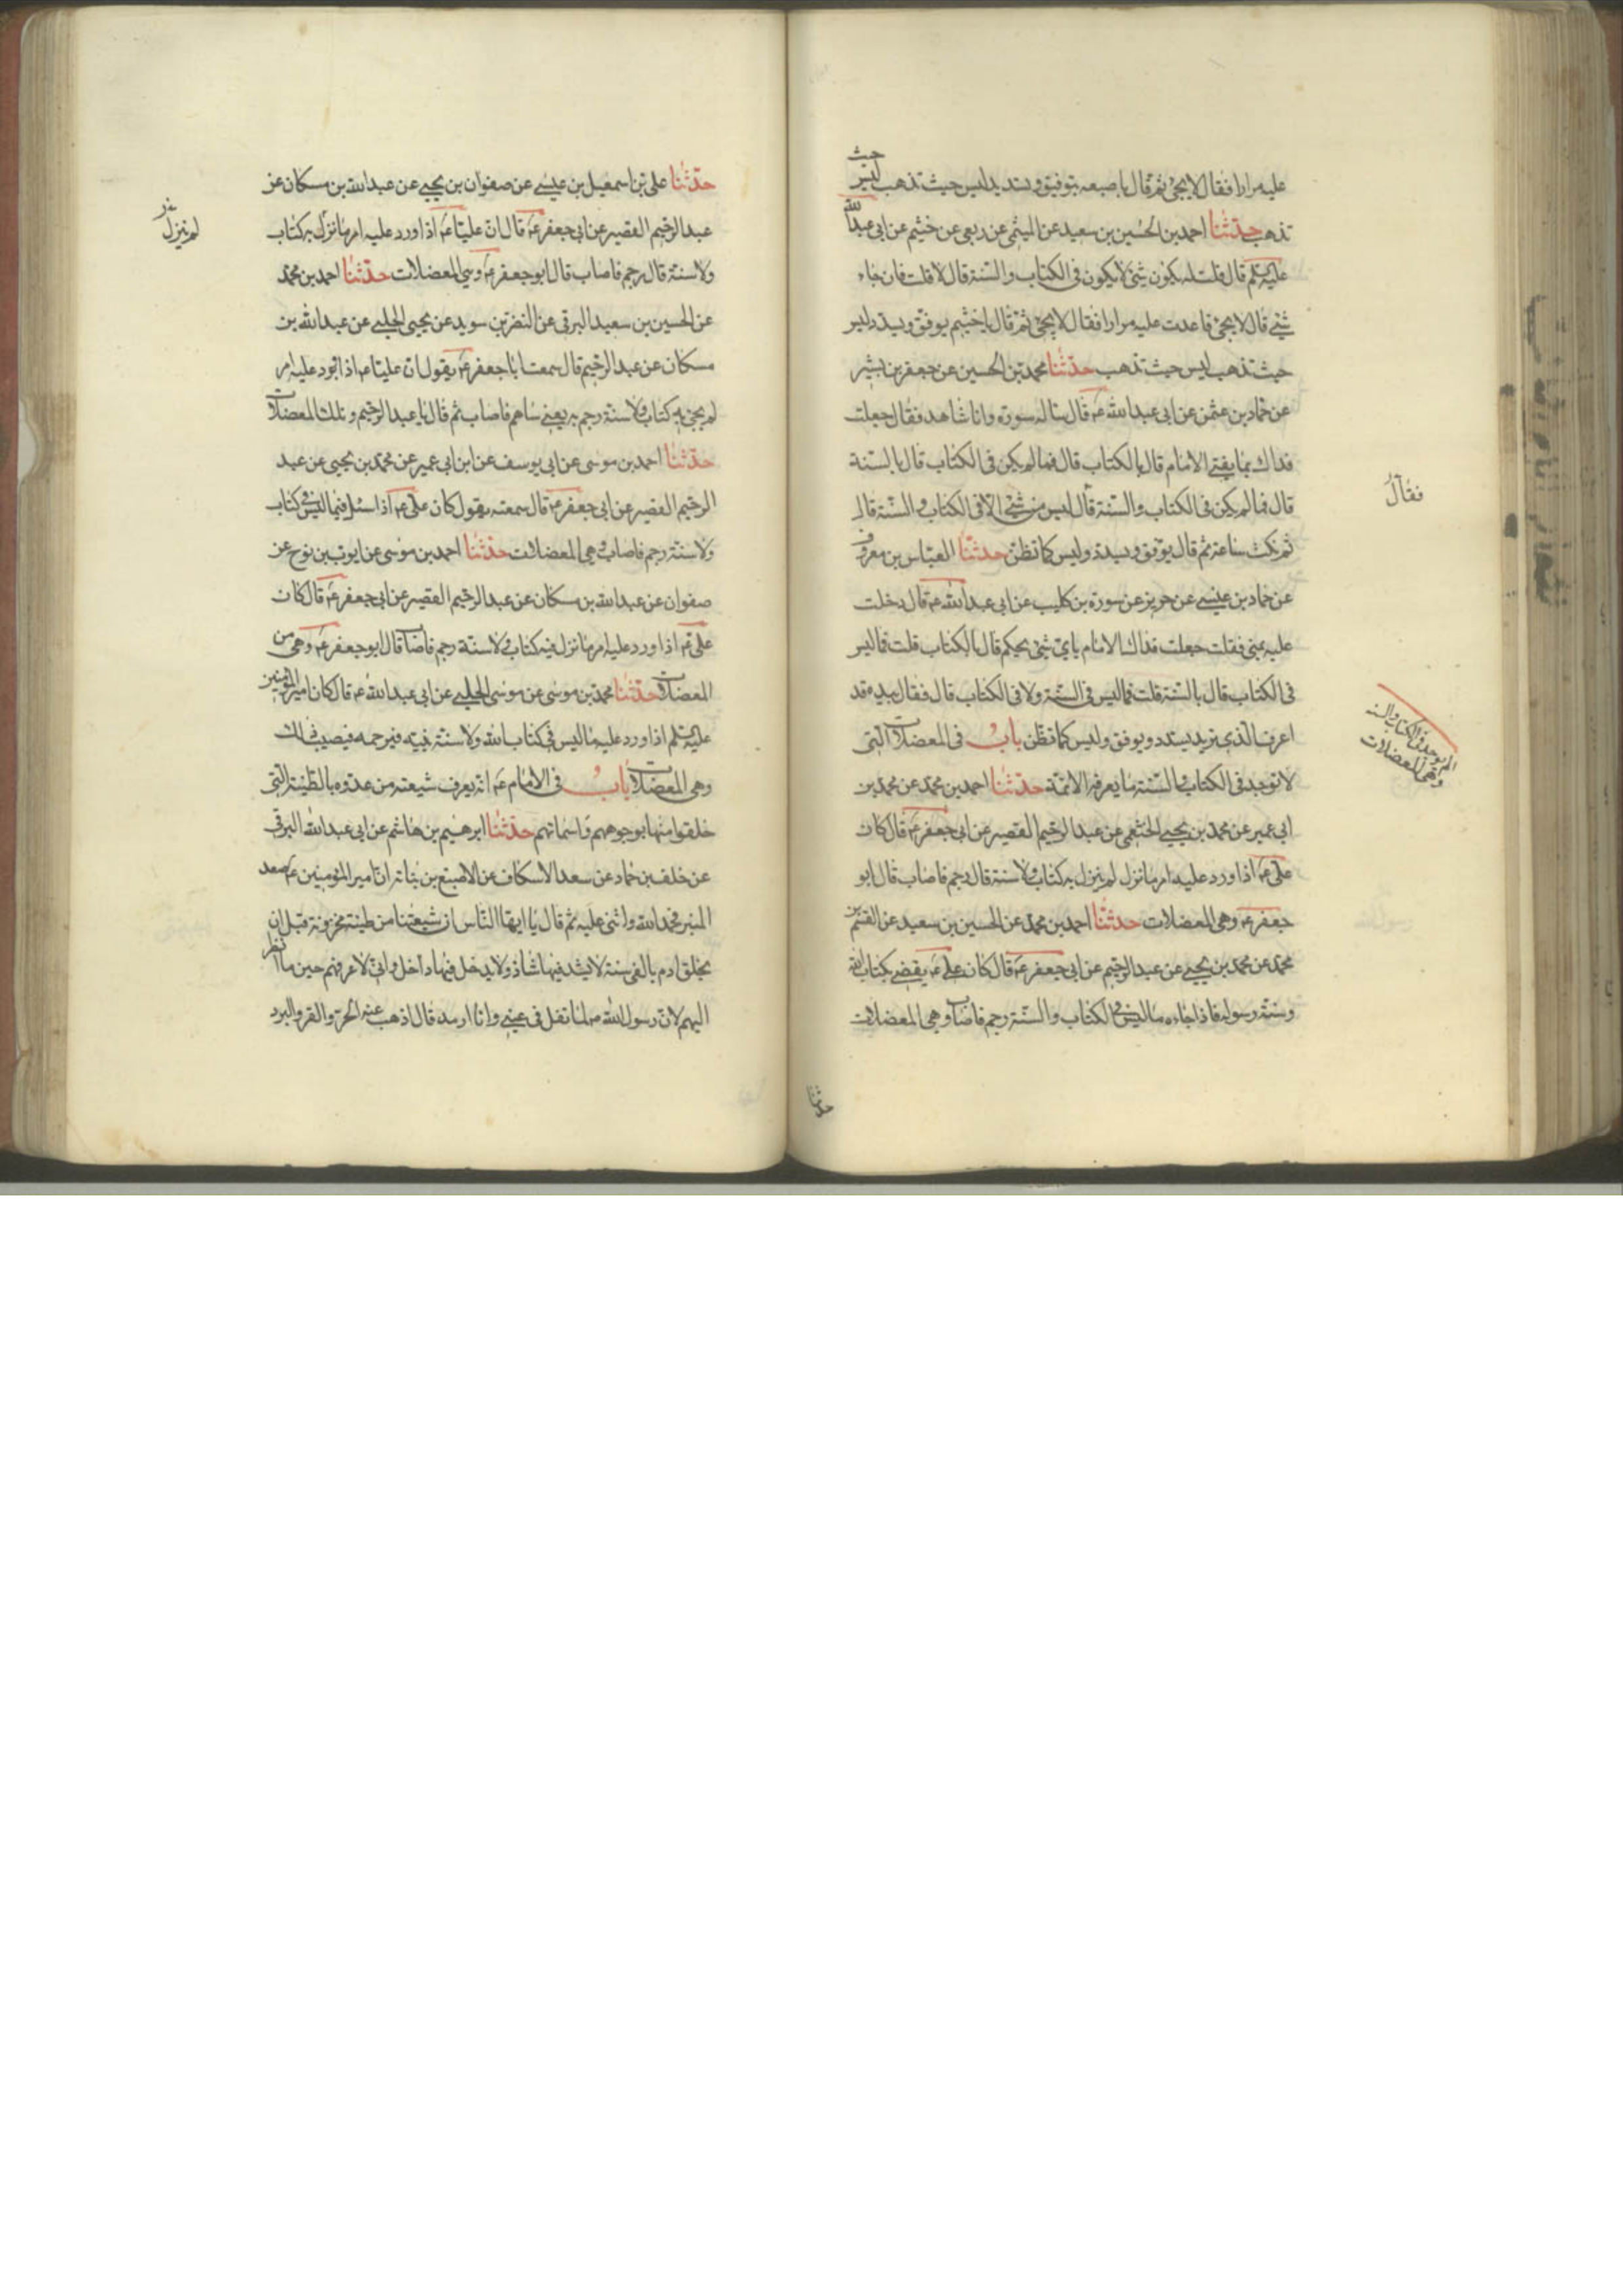 عليه مرارا فقال لا يجئ ثم قال باصبعه بتوفيق وتسديد ليس حيث تذهب ليس حيث
تذهب حدثنا احمد بن الحسين بن سعيد عن الميثمي عن ربعي عن خثيم عن ابي عبد الله
عليه السلم قال قلت له يكون شئ لا يكون في الكتاب والسنة قال لا قلت فان جاء
شئ قال لا يجئ فاعدت عليه مرارا فقال لا يجئ ثم قال يا خثيم يوفق ويسدد ليس
حيث تذهب ليس حيث تذهب حدثنا محمد بن الحسين عن جعفر بن بشير
عن حماد بن عثمن عن ابي عبد الله ع قال ساله سورة وانا شاهد فقال جعلت
فداك بما يفتي الامام قال بالكتاب قال فما لم يكن في الكتاب قال بالسنة
قال فما لم يكن في الكتاب والسنة قال ليس من شئ الا في الكتاب والسنة قال
ثم مكث ساعة ثم قال يوفق ويسدد وليس كما تظن حدثنا العباس بن معروف
عن حماد بن عيسى عن حريز عن سورة بن كليب عن ابي عبد الله ع قال دخلت
عليه بمنى فقلت جعلت فداك الامام باي شئ يحكم قال بالكتاب قلت فما ليس
في الكتاب قال بالسنة قلت فما ليس في السنة ولا في الكتاب قال فقال بيده قد
اعرف الذي تريد يسدد ويوفق وليس كما تظن باب في المعضلات التي
لا توجد في الكتاب والسنة ما يعرفه الائمة حدثنا احمد بن محمد عن محمد بن
ابي عمير عن محمد بن يحيى الخثعمي عن عبد الرحيم القصير عن ابي جعفر ع قال كان
علي ع اذا ورد عليه امر ما نزل لم ينزل به كتاب ولا سنة قال رجم فاصاب قال ابو
جعفر ع وهي المعضلات حدثنا احمد بن محمد عن الحسين بن سعيد عن القسم بن
محمد عن محمد بن يحيى عن عبد الرحيم عن ابي جعفر ع قال كان علي ع يقضي بكتاب الله
وسنة رسوله فاذا جاءه ما ليس في الكتاب والسنة رجم فاصاب وهي المعضلات
فقال
وهي المعضلات
حدثنا
حدثنا علي بن اسمعيل بن عيسى عن صفوان بن يحيى عن عبد الله بن مسكان عن
عبد الرحيم القصير عن ابي جعفر ع قال ان عليا ع اذا ورد عليه امر ما نزل به كتاب
ولا سنة قال رجم فاصاب قال ابو جعفر ع وهي المعضلات حدثنا احمد بن محمد
عن الحسين بن سعيد البرقي عن النضر بن سويد عن يحيى الحلبي عن عبد الله بن
مسكان عن عبد الرحيم قال سمعت ابا جعفر ع يقول ان عليا ع اذا ورد عليه امر
لم يجئ به كتاب ولا سنة رجم به يعني ساهم فاصاب ثم قال يا عبد الرحيم وتلك المعضلات
حدثنا احمد بن موسى عن ابي يوسف عن ابن ابي عمير عن محمد بن يحيى عن عبد
الرحيم القصير عن ابي جعفر ع قال سمعته يقول كان علي ع اذا سئل فيما ليس في كتاب
ولا سنة رجم فاصاب وهي المعضلات حدثنا احمد بن موسى عن ايوب بن نوح عن
صفوان عن عبد الله بن مسكان عن عبد الرحيم القصير عن ابي جعفر ع قال كان
علي ع اذا ورد عليه امر ما نزل فيه كتاب ولا سنة رجم فاصاب قال ابو جعفر ع وهي من
المعضلات حدثنا محمد بن موسى عن موسى الحلبي عن ابي عبد الله ع قال كان امير المؤمنين
عليه السلم اذا ورد عليه ما ليس في كتاب الله ولا سنة نبيه فيرجمه فيصيب ذلك
وهي المعضلات باب في الامام ع انه يعرف شيعته من عدوه بالطينة التي
خلقوا منها بوجوههم واسمائهم حدثنا ابرهيم بن هاشم عن ابي عبد الله البرقي
عن خلف بن حماد عن سعد الاسكاف عن الاصبغ بن نباتة ان امير المؤمنين ع صعد
المنبر فحمد الله واثنى عليه ثم قال يا ايها الناس ان شيعتنا من طينة مخزونة قبل ان
يخلق ادم بالفي سنة لا يشذ فيها شاذ ولا يدخل فيها داخل واني لاعرفهم حين ما انظر
اليهم لان رسول الله ص لما تفل في عيني وانا ارمد قال اذهب عنه الحر والقر والبرد
لم ينزل